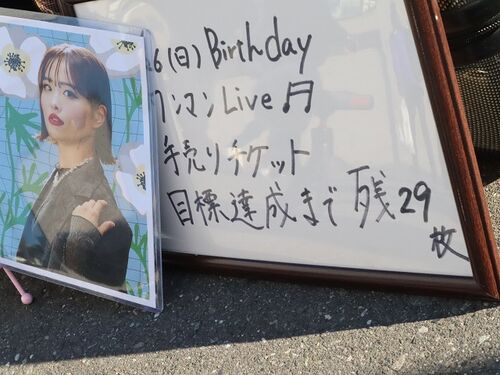 6(日)Birthday
ワンマンLive♫
手売りチケット
目標達成まで残29
枚